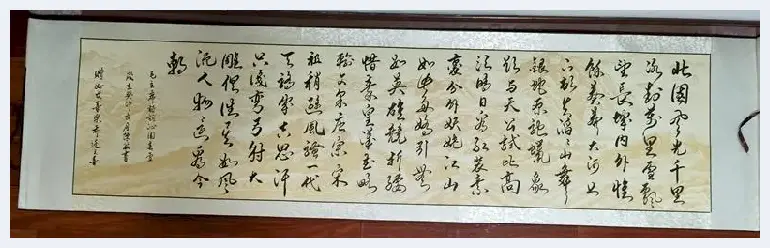 北国风光千里
冰封万里雪飘
望长城内外惟
馀莽莽大河上
下顿失滔滔山舞
银蛇原驰蜡象
欲与天公试比高
须晴日看红装素
裹分外妖娆江山
如此多娇引无
数英雄竞折腰
惜秦皇汉武略
输文采唐宗宋
祖稍逊风骚一代
天骄成吉思汗
只识弯弓射大
雕俱往矣数风
流人物还看今
朝
毛主席诗词沁园春雪